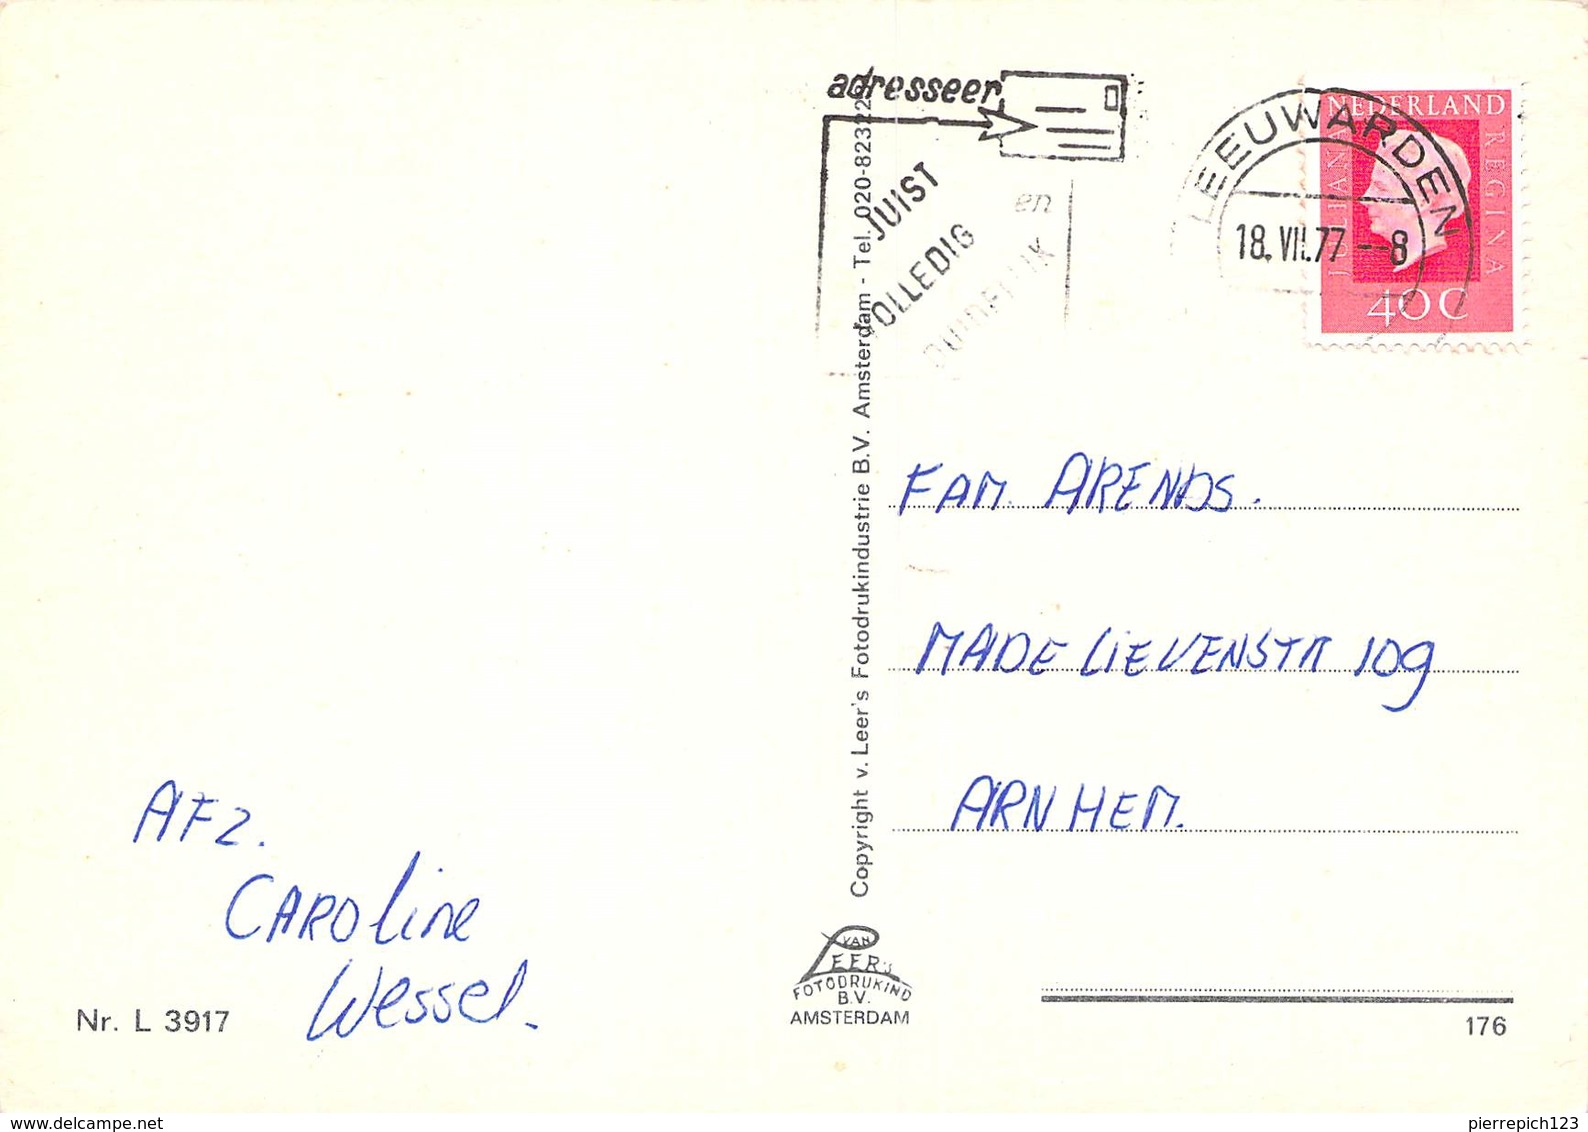 adresseer
JUIST
en
VOLLEDIG
DUIDELIJK
LEEUWARDEN
18.VII.77 --8
NEDERLAND
JULIANA
REGINA
40C
Copyright v. Leer's Fotodrukindustrie B.V. Amsterdam - Tel. 020-82322
FAM. ARENDS.
MADELIEVENSTR 109
ARNHEM.
AFZ.
CAROline
Wessel.
Nr. L 3917
VAN
LEER's
FOTODRUKIND
B.V.
AMSTERDAM
176
delcampe.net
pierrepich123